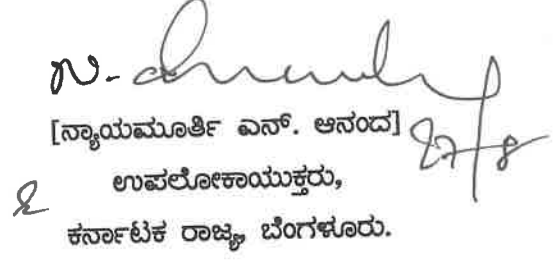 [ನ್ಯಾಯಮೂರ್ತಿ ಎನ್. ಆನಂದ]
27/8
ಉಪಲೋಕಾಯುಕ್ತರು,
ಕರ್ನಾಟಕ ರಾಜ್ಯ, ಬೆಂಗಳೂರು.